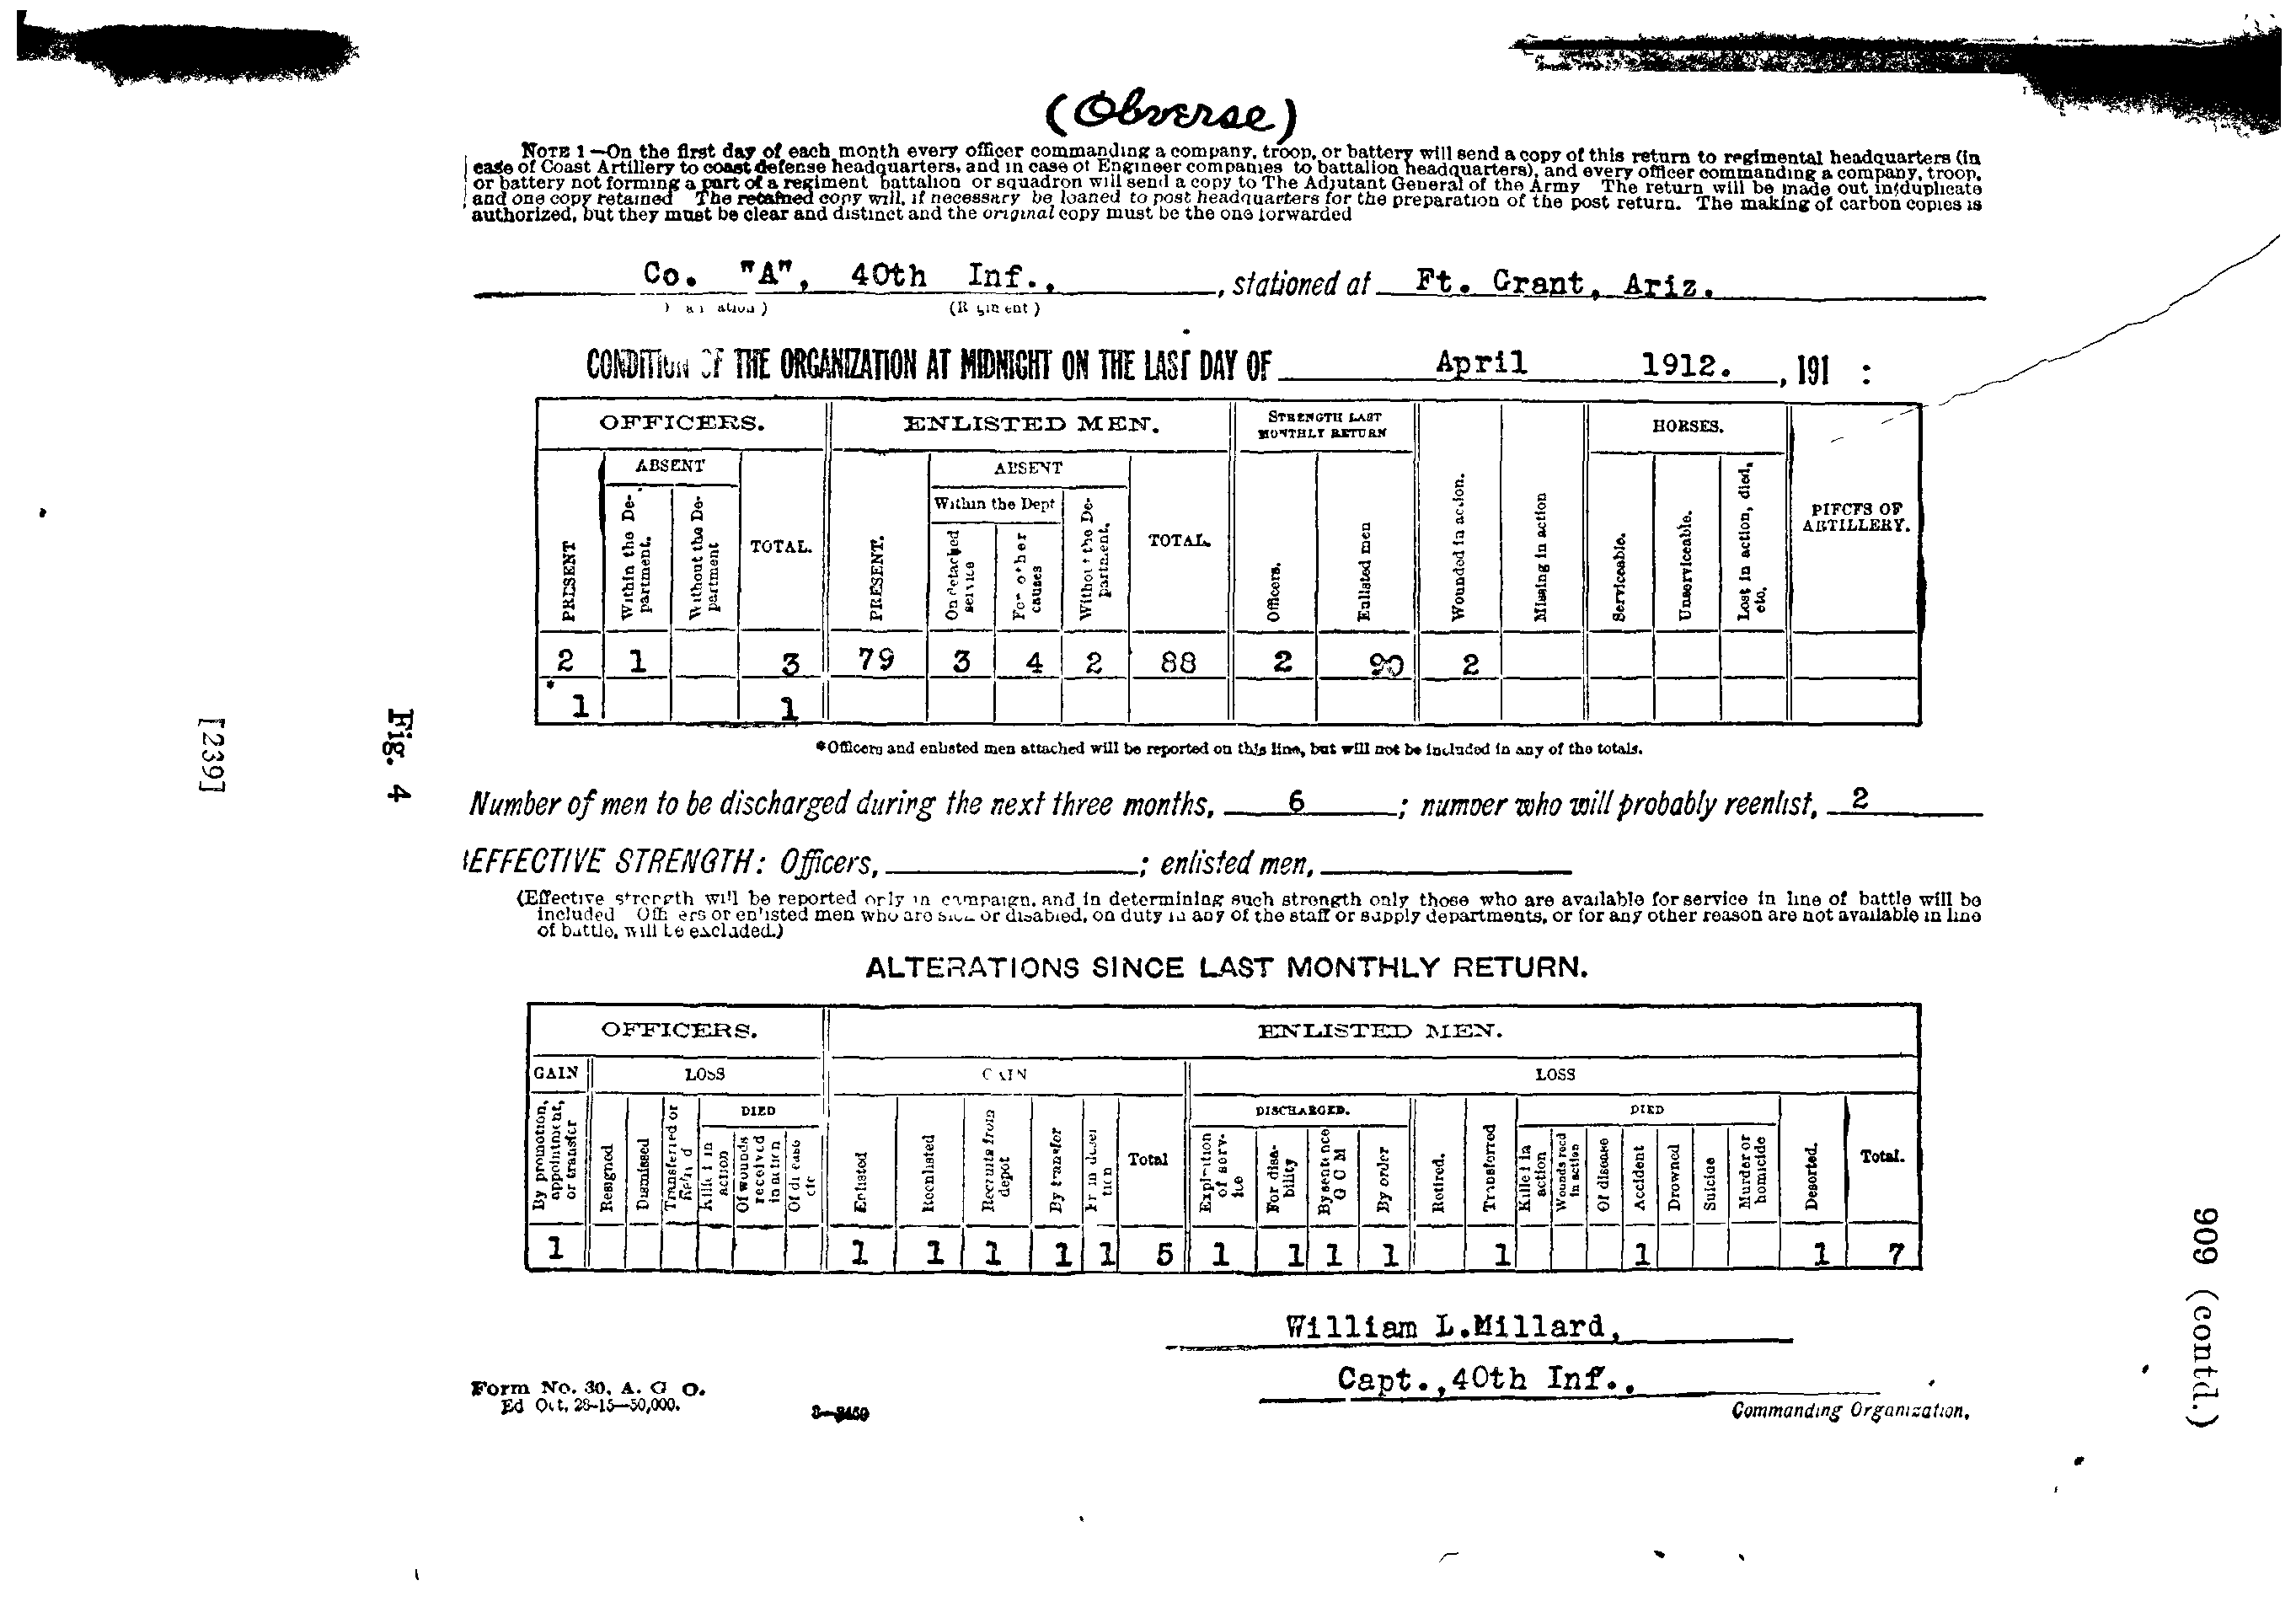 (Obverse)
NOTE 1—On the first day of each month every officer commanding a company, troop, or battery will send a copy of this return to regimental headquarters (in
case of Coast Artillery to coast defense headquarters, and in case of Engineer companies to battalion headquarters), and every officer commanding a company, troop,
or battery not forming a part of a regiment battalion or squadron will send a copy to The Adjutant General of the Army The return will be made out in duplicate
and one copy retained The retained copy will, if necessary be loaned to post headquarters for the preparation of the post return. The making of carbon copies is
authorized, but they must be clear and distinct and the original copy must be the one forwarded
Co. "A", 40th Inf., , stationed at Ft. Grant, Ariz.
CONDITION OF THE ORGANIZATION AT MIDNIGHT ON THE LAST DAY OF April 1912. , 191 :
OFFICERS. ENLISTED MEN. STRENGTH LAST MONTHLY RETURN HORSES.
ABSENT ABSENT
Within the Dept
PRESENT Within the Department. Without the Department TOTAL. PRESENT. On detached service For other causes Without the Department. TOTAL. Officers. Enlisted men Wounded in action. Missing in action Serviceable. Unserviceable. Lost in action, died, etc. PIECES OF ARTILLERY.
2 1 3 79 3 4 2 88 2 90 2
* 1 1
*Officers and enlisted men attached will be reported on this line, but will not be included in any of the totals.
Number of men to be discharged during the next three months, 6 ; number who will probably reenlist, 2
EFFECTIVE STRENGTH: Officers, ; enlisted men,
(Effective strength will be reported only in campaign, and in determining such strength only those who are available for service in line of battle will be
included Officers or enlisted men who are sick or disabled, on duty in any of the staff or supply departments, or for any other reason are not available in line
of battle, will be excluded.)
ALTERATIONS SINCE LAST MONTHLY RETURN.
OFFICERS. ENLISTED MEN.
GAIN LOSS GAIN LOSS
DIED DISCHARGED. DIED
By promotion, appointment, or transfer Resigned Dismissed Transferred or Retired Killed in action Of wounds received in action Of disease etc Enlisted Reenlisted Recruits from depot By transfer From desertion Total Expiration of service For disability By sentence G C M By order Retired. Transferred Killed in action Wounds recd in action Of disease Accident Drowned Suicide Murder or homicide Deserted. Total.
1 1 1 1 1 1 5 1 1 1 1 1 1 1 7
William L.Millard,
Capt.,40th Inf.,
Commanding Organization.
Form No. 30, A. G O.
Ed Oct. 28-15—50,000.
3—3459
Fig. 4
[239]
909 (contd.)